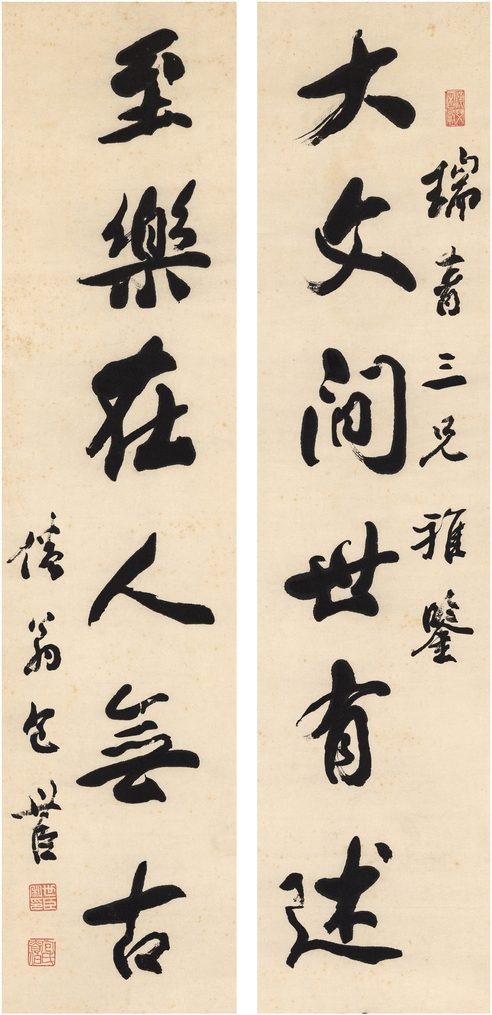 瑞青三兄雅鑒
大文間世有述
至樂在人無古
倦翁包世臣